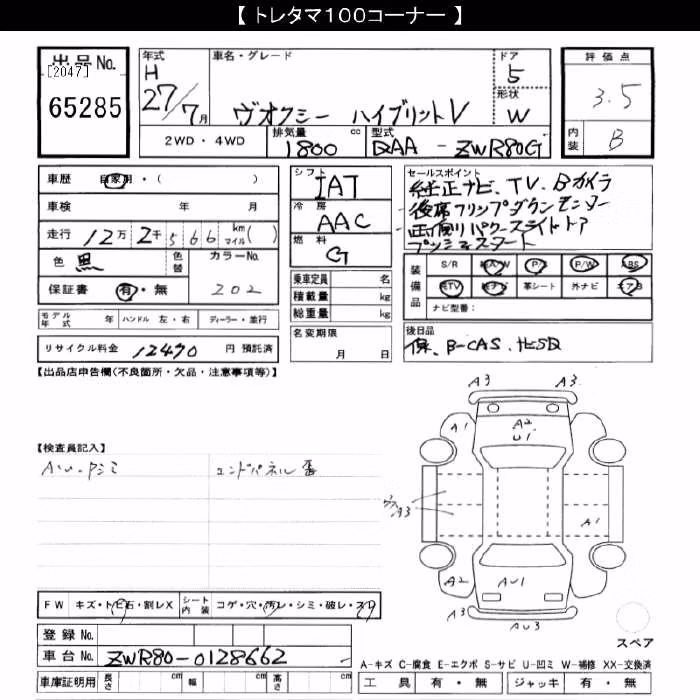 【 トレタマ100コーナー 】
出品No.
[2047]
65285
年式 車名・グレード ドア
H 27/7月 ヴオクシー ハイブリットV 5
形状 W
2WD・4WD 排気量 1800 cc 型式 DAA - ZWR80G
評価点
3.5
内装 B
車歴 自家用・( )
車検 年 月
走行 12万 2千566 km マイル( )
色 黒 色替 カラーNo.
保証書 有・無 202
モデル年式 年 ハンドル 左・右 ディーラー・並行
リサイクル料金 12490 円 預託済
シフト IAT
冷房 AAC
燃料 G
乗車定員 名
積載量 kg
総重量 kg
名変期限
月 日
セールスポイント
純正ナビ、TV、Bカメラ
後席フリップダウンモニター
両側パワースライドドア
プッシュスタート
装備品 S/R 純A/W P/S P/W ABS
純TV 純ナビ 革シート 外ナビ エアB
ナビ型番:
後日品
保、B-CAS、セSD
【出品店申告欄(不良箇所・欠品・注意事項等)】
【検査員記入】
AU・Pシミ エンドパネル番
A3 A3
A1 A2
U1
A3
A1
A2 AU1
A3 AU3
スペア
FW キズ・トビ石・割レX シート内装 コゲ・穴・汚レ・シミ・破レ・スレ
登録No.
車台No. ZWR80-0128662
車庫証明用 長さ cm 幅 cm 高さ cm
A-キズ C-腐食 E-エクボ S-サビ U-凹ミ W-補修 XX-交換済
工具 有・無 ジャッキ 有・無